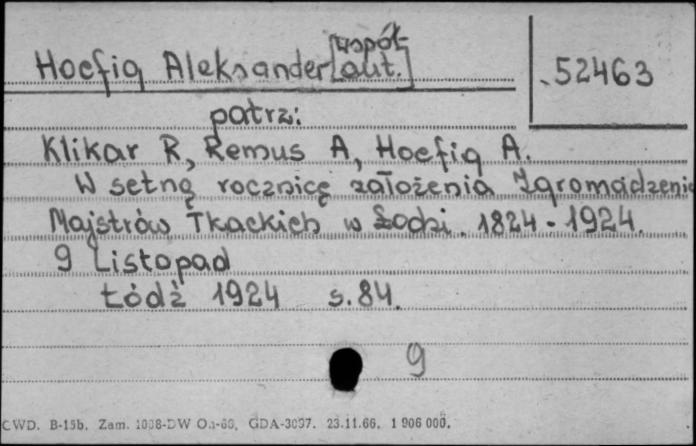 Hoefig Aleksander [współ-
aut.]
52463
patrz:
Klikar R, Remus A, Hoefig A.
W setną rocznicę założenia Zgromadzenia
Majstrów Tkackich w Łodzi. 1824-1924.
9 Listopad
Łódź 1924 s.84.
9
CWD. B-15b. Zam. GDA-3097. 23.11.66. 1 906 000.